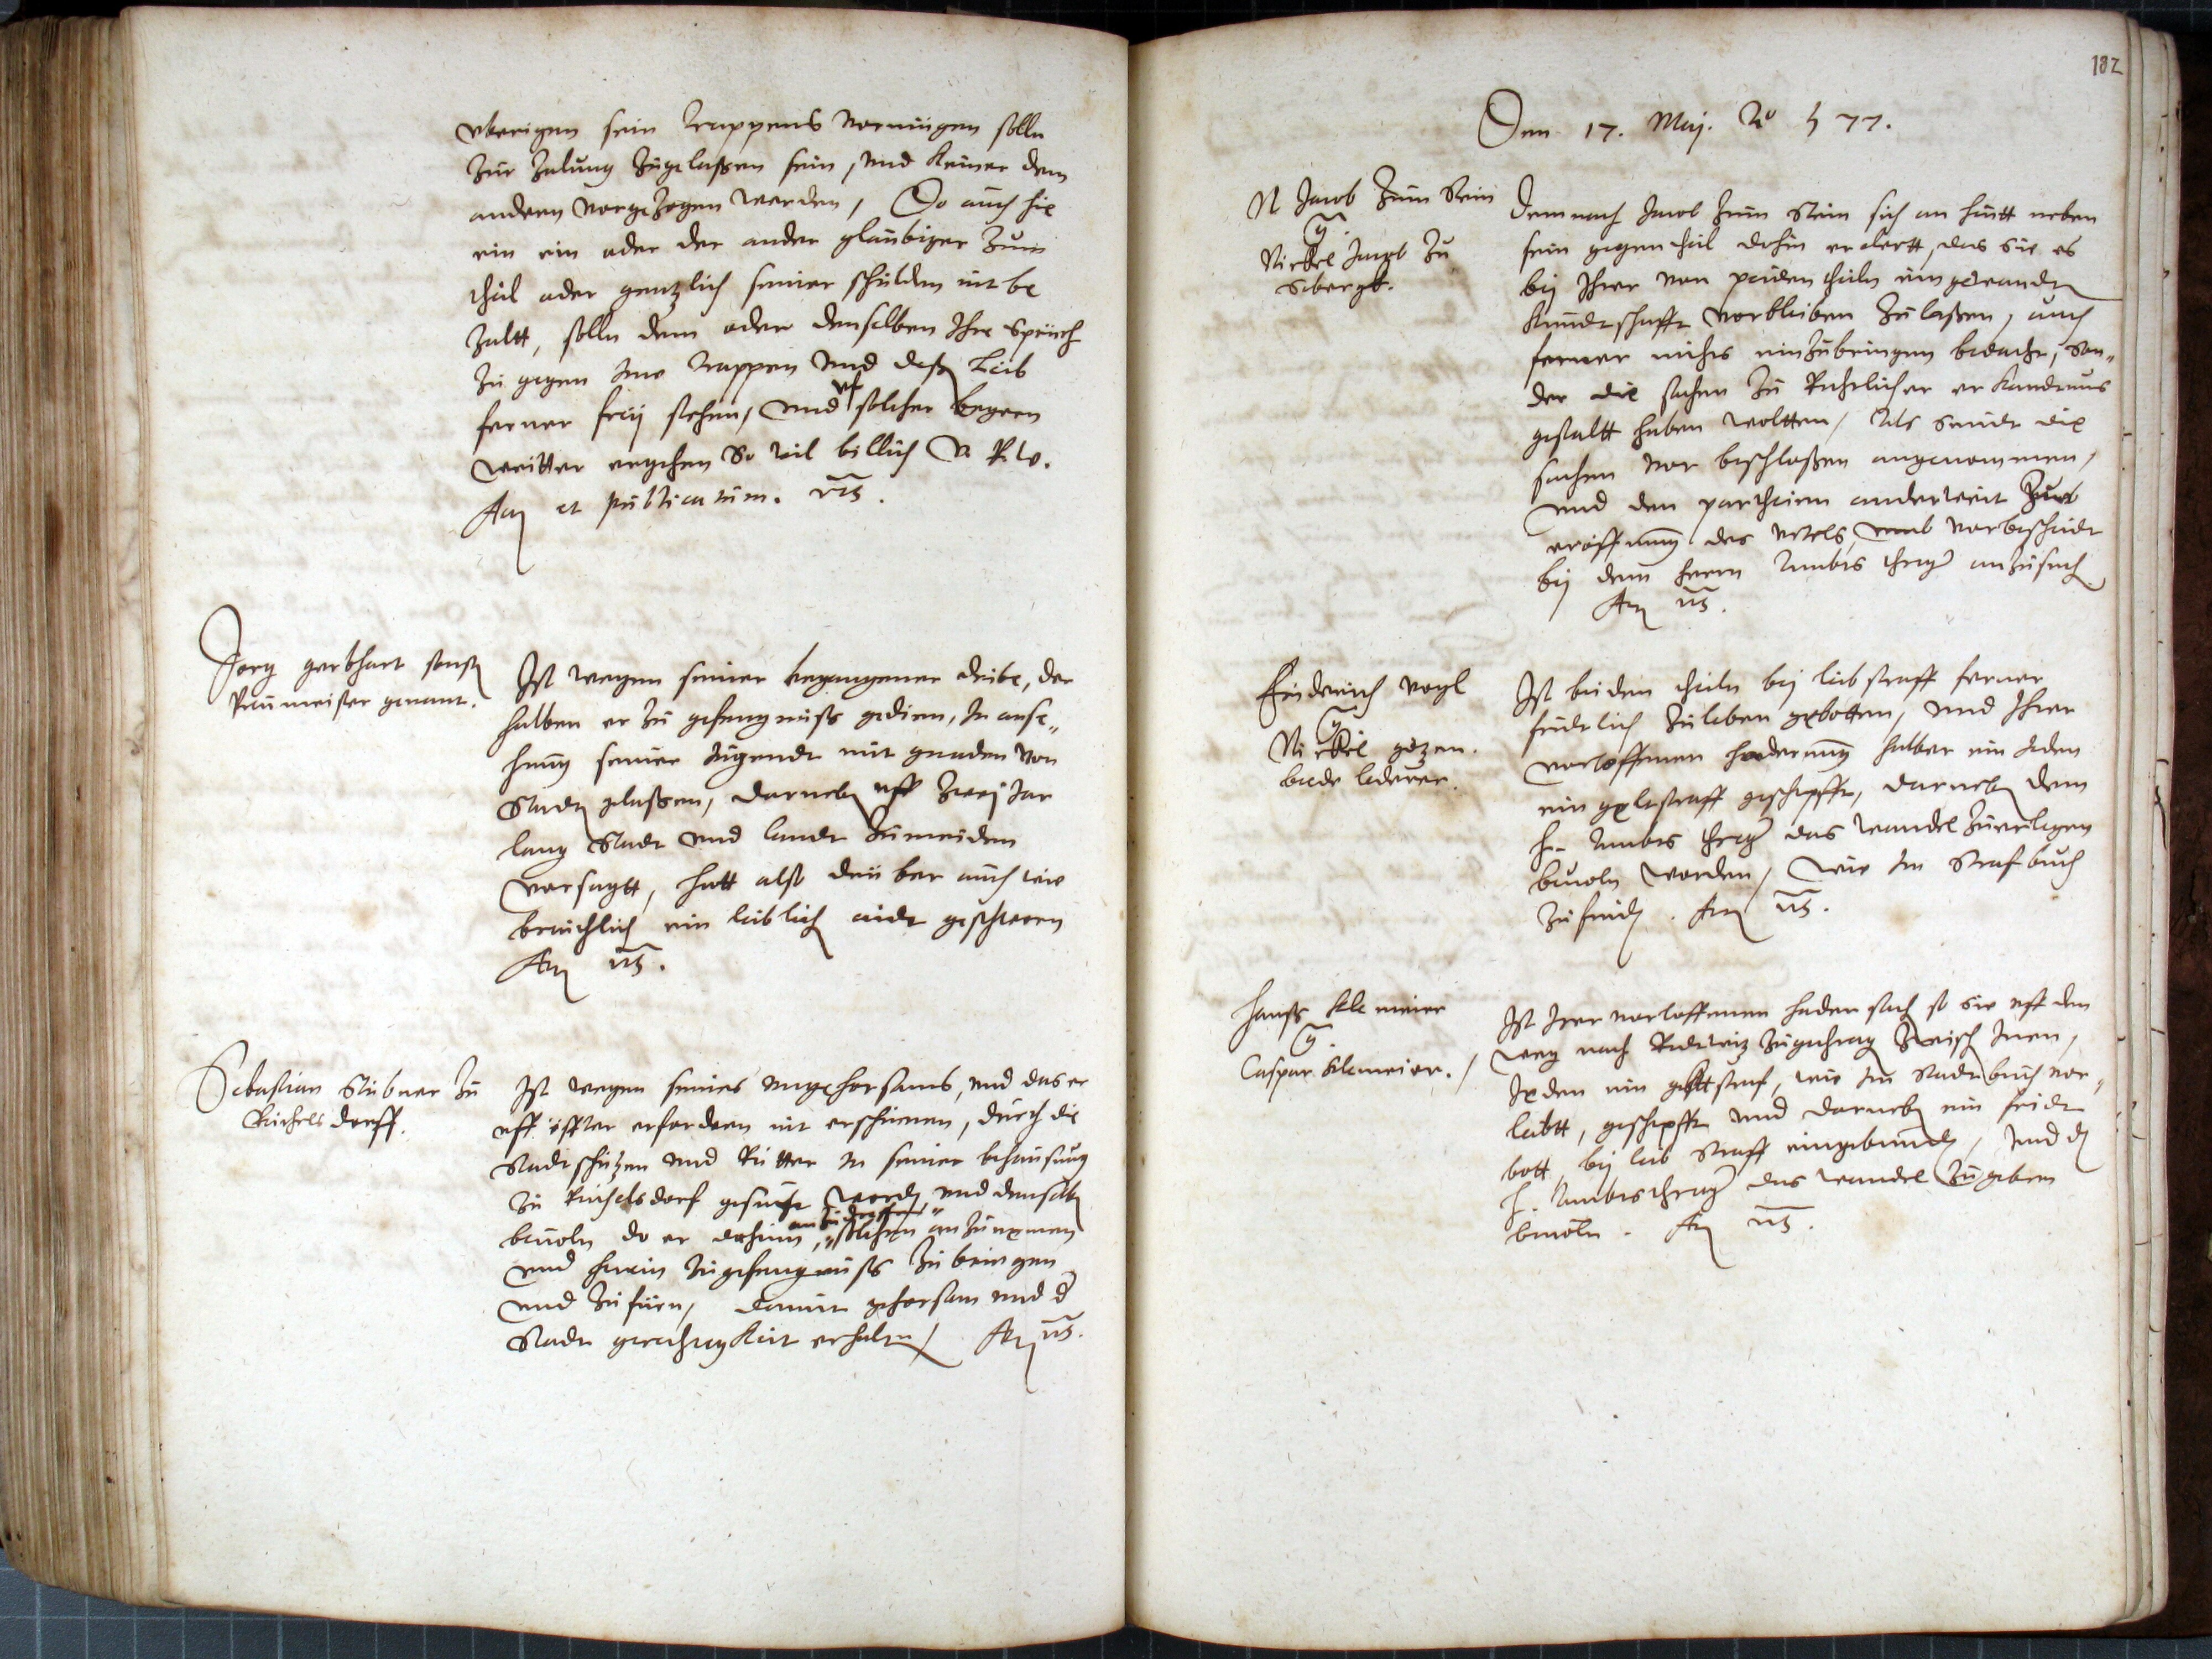 vberigen sein Trappens vermügen solln
zur zalung zugelaßen sein, und keiner dem
andern vorgezogen werden, Do auch hie
ein ein oder der ander glaubiger zum
theil oder gentzlich seiner schulden nit be
zaltt, solln dem oder denselben Ihre sprüch
zu gegen Trappen und deßen Leib
ferner frey stehen, und vf solcher begern
weitter ergehen So viel billich V. R. W.
Act et publicatum. uts.
Jorg gerbhart sonst
Paumeister genant.
Ist wegen seiner begangener diebe, der
halben er zu gefengnuß gediern, In anse„
hung seiner Jugendt mit gnaden von
Stadten gelaßen, darneben vff zwey Jar
lang Stadt und landt zumeiden
versagtt, hatt also drüber auch wie
breuchlich ein leiblich aidt geschworn
Act uts.
Sebastian Stubner zu
Reichelsdorff.
Ist wegen seines ungehorsams, und das er
vff öffter erfordern nit erschienen, durch die
Stadtschützen und Ritter in seiner behausung
zu Reichelsdorf gesucht worden und denselben
bevoln do er anzutreffen
doheim, solchen anzunemen
und herein zugefengnuß zu bringen
und zufüren, damit gehorsam und der
Stadt gerechtigkeit erhalten, Act uts.
182
Den 17. Maij. Ao 577.
N Jacob zum Stein
Nickel Jacob zu
Seberg.
Demnach Jacob zum Stein sich an heutt neben
sein gegentheil dohin erclertt, das sie es
bey Ihrer von paiden theiln eingewandten
Kundtschafft verbleiben zulaßen, auch
ferner nichts einzubringen bedacht, son„
der die sachen zu Richtlicher erkandtnus
gestaltt haben woltten, Als seindt die
sachen vor beschloßen angenommen,
und den partheien anderweit zur
eröffnung des urtels, umb vorbescheidt
bey dem herrn Ambtstrager anzusuchen
Act uts.
Friderich vogl
Nickel götzen.
bede lederer.
Ist beiden theiln bey leibstraff ferner
friedlich zuleben gebotten, und Ihrer
verloffenen haderung halber ein jeden
ein geltstraff geschepfft, darneben dem
H. Ambtstrager das wandel zuerlegen
bevoln worden, wie im Strafbuch
zufinden. Act uts.
Hanß klemeier
Caspar klemeier.
Ist Irer verloffenen hadersach so sie uff dem
weg nach Redtwitz zugetragen zwischen Inen,
Jeden ein geltstraf, wie im Stadtbuch ver„
leibtt, geschepfft und darneben ein fridt
bott bey leib straff eingebunden, und dem
H. Ambtstrager das wandel zugeben
bevoln. Act uts.